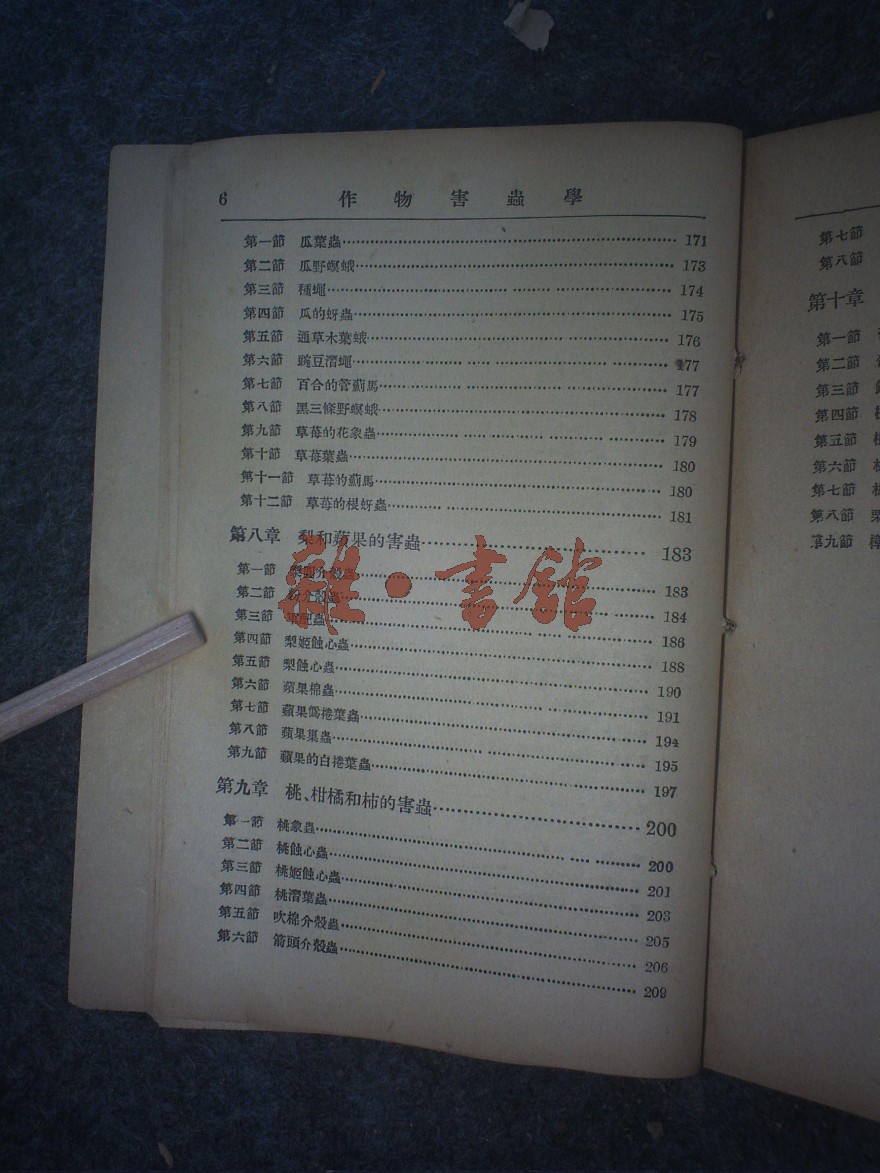 6 作物害蟲學
第一節 瓜葉蟲 171
第二節 瓜野螟蛾 173
第三節 種蠅 174
第四節 瓜的蚜蟲 175
第五節 通草木葉蛾 176
第六節 豌豆潛蠅 177
第七節 百合的管薊馬 177
第八節 黑三條野螟蛾 178
第九節 草莓的花象蟲 179
第十節 草莓葉蟲 180
第十一節 草莓的薊馬 180
第十二節 草莓的根蚜蟲 181
第八章 梨和蘋果的害蟲 183
第一節 梨圓介殼蟲 183
第二節 粉介殼蟲 184
第三節 軍配蟲 186
第四節 梨姬蝕心蟲 188
第五節 梨蝕心蟲 190
第六節 蘋果棉蟲 191
第七節 蘋果僞捲葉蟲 194
第八節 蘋果巢蟲 195
第九節 蘋果的白捲葉蟲 197
第九章 桃、柑橘和柿的害蟲 200
第一節 桃象蟲 200
第二節 桃蝕心蟲 201
第三節 桃姬蝕心蟲 203
第四節 桃潛葉蟲 205
第五節 吹棉介殼蟲 206
第六節 箭頭介殼蟲 209
雜·書館
第七節
第八節
第十章
第一節
第二節
第三節
第四節
第五節
第六節
第七節
第八節
第九節